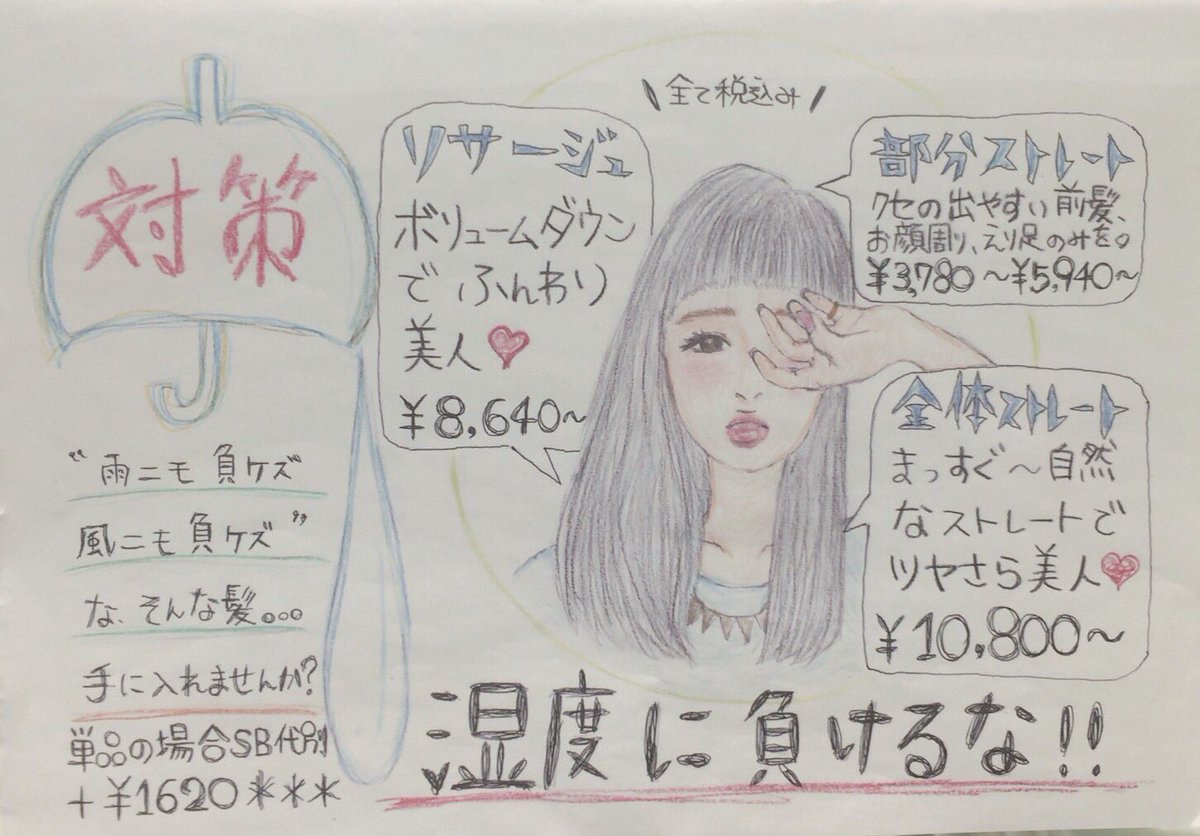 対策
"雨ニモ負ケズ
風ニモ負ケズ"
な、そんな髪。。。
手に入れませんか?
単品の場合SB代別
+¥1620***
\全て税込み/
リサージュ
ボリュームダウン
でふんわり
美人♥
¥8,640~
部分ストレート
クセの出やすい前髪、
お顔周り、えり足のみを。
¥3,780~¥5,940~
全体ストレート
まっすぐ~自然
なストレートで
ツヤさら美人♥
¥10,800~
湿度に負けるな!!